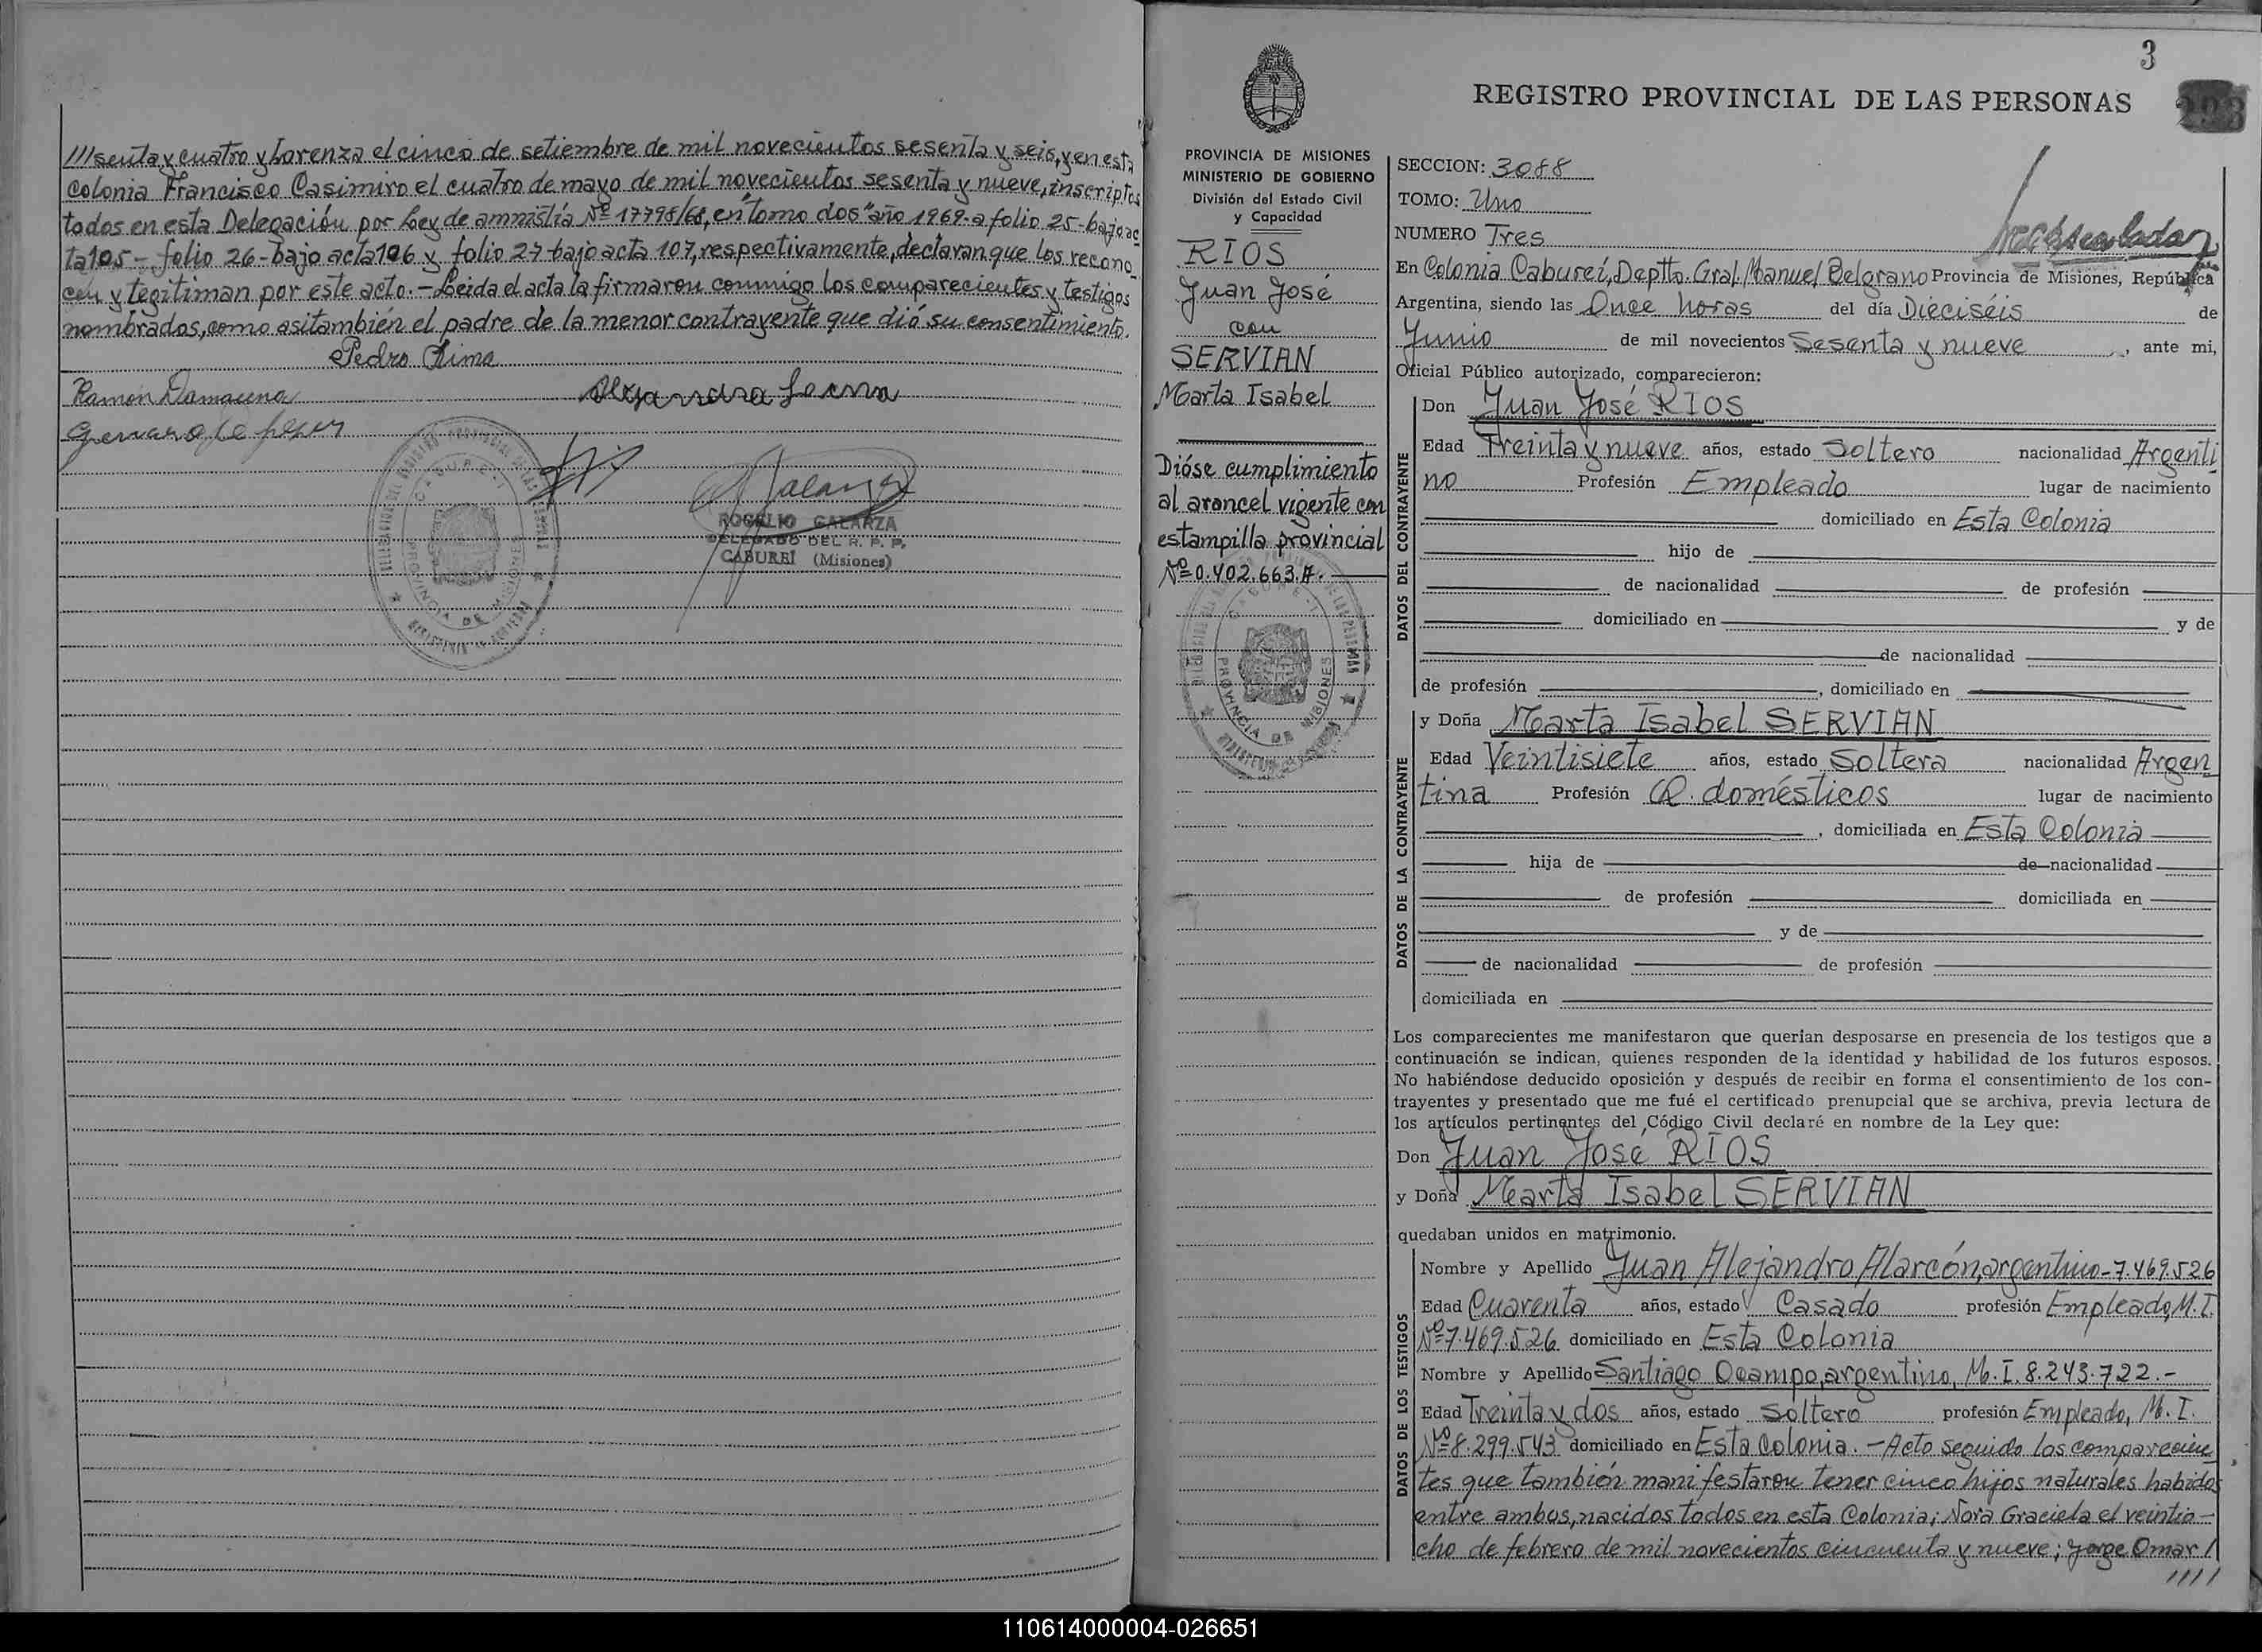 ///senta y cuatro y Lorenza el cinco de setiembre de mil novecientos sesenta y seis, y en esta
Colonia Francisco Casimiro el cuatro de mayo de mil novecientos sesenta y nueve, inscriptos
todos en esta Delegación por Ley de amnistía Nº 17798/68, en "tomo dos" año 1969- a folio 25- bajo ac
ta 105 - folio 26- bajo acta 106 y folio 27 bajo acta 107, respectivamente, declaran que los recono
cen y legitiman por este acto. - Leida el acta la firmaron conmigo los comparecientes y testigos
nombrados, como asi también el padre de la menor contrayente que dió su consentimiento.
Pedro Lima
Ramón Damacena
ROGELIO GALARZA
DELEGADO DEL R. P. P.
CABUREI (Misiones)
3
REGISTRO PROVINCIAL DE LAS PERSONAS
293
PROVINCIA DE MISIONES
MINISTERIO DE GOBIERNO
División del Estado Civil
y Capacidad
RIOS
Juan José
con
SERVIAN
Marta Isabel
Dióse cumplimiento
al arancel vigente con
estampilla provincial
Nº 0.402.663.A.
PROVINCIA DE MISIONES
SECCION: 3088
TOMO: Uno
NUMERO Tres
En Colonia Cabureí, Deptto. Gral. Manuel Belgrano Provincia de Misiones, República
Argentina, siendo las Once horas del día Dieciséis de
Junio de mil novecientos Sesenta y nueve, ante mi,
Oficial Público autorizado, comparecieron:
DATOS DEL CONTRAYENTE
Don Juan José RIOS
Edad Treinta y nueve años, estado Soltero nacionalidad Argenti
no Profesión Empleado lugar de nacimiento
domiciliado en Esta Colonia
hijo de
de nacionalidad de profesión
domiciliado en y de
de nacionalidad
de profesión , domiciliado en
DATOS DE LA CONTRAYENTE
y Doña Marta Isabel SERVIAN
Edad Veintisiete años, estado Soltera nacionalidad Argen
tina Profesión Q. domésticos lugar de nacimiento
, domiciliada en Esta Colonia
hija de de nacionalidad
de profesión domiciliada en
y de
de nacionalidad de profesión
domiciliada en
Los comparecientes me manifestaron que querían desposarse en presencia de los testigos que a
continuación se indican, quienes responden de la identidad y habilidad de los futuros esposos.
No habiéndose deducido oposición y después de recibir en forma el consentimiento de los con-
trayentes y presentado que me fué el certificado prenupcial que se archiva, previa lectura de
los artículos pertinentes del Código Civil declaré en nombre de la Ley que:
Don Juan José RIOS
y Doña Marta Isabel SERVIAN
quedaban unidos en matrimonio.
DATOS DE LOS TESTIGOS
Nombre y Apellido Juan Alejandro Alarcón, argentino-7.469.526
Edad Cuarenta años, estado Casado profesión Empleado, M.I.
Nº 7.469.526 domiciliado en Esta Colonia
Nombre y Apellido Santiago Ocampo, argentino, M.I. 8.243.722.-
Edad Treinta y dos años, estado Soltero profesión Empleado, M. I.
Nº 8.299.543 domiciliado en Esta Colonia. - Acto seguido los comparecien
tes que también manifestaron tener cinco hijos naturales habidos
entre ambos, nacidos todos en esta Colonia; Nora Graciela el veintio-
cho de febrero de mil novecientos cincuenta y nueve; Jorge Omar /
////
110614000004-026651